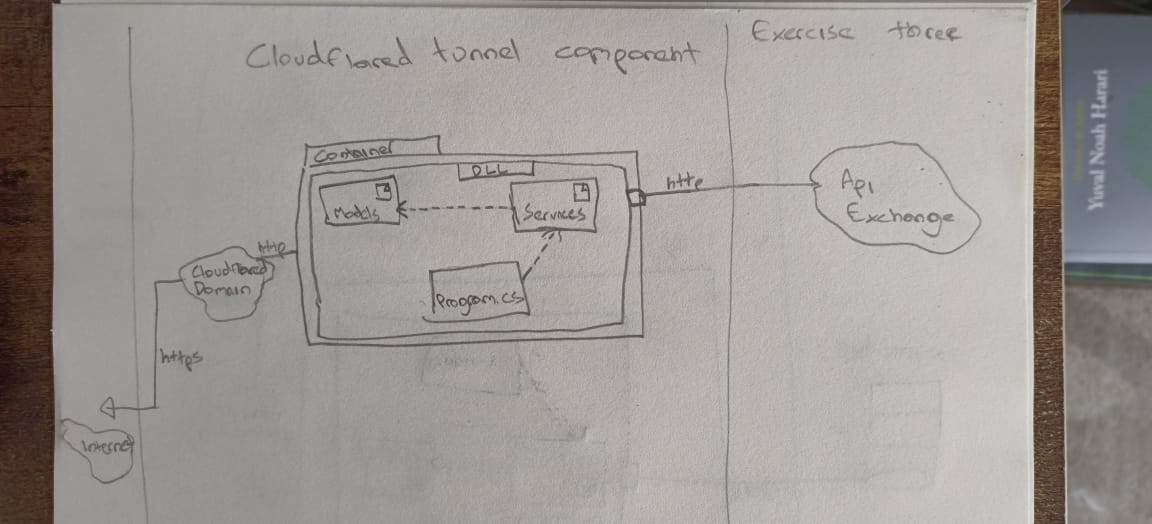 Exercise three
Cloudflared tunnel component
Container
DLL
Models
Services
http
Api
Exchange
http
Cloudflared
Domain
Program.cs
https
Internet
Yuval Noah Harari